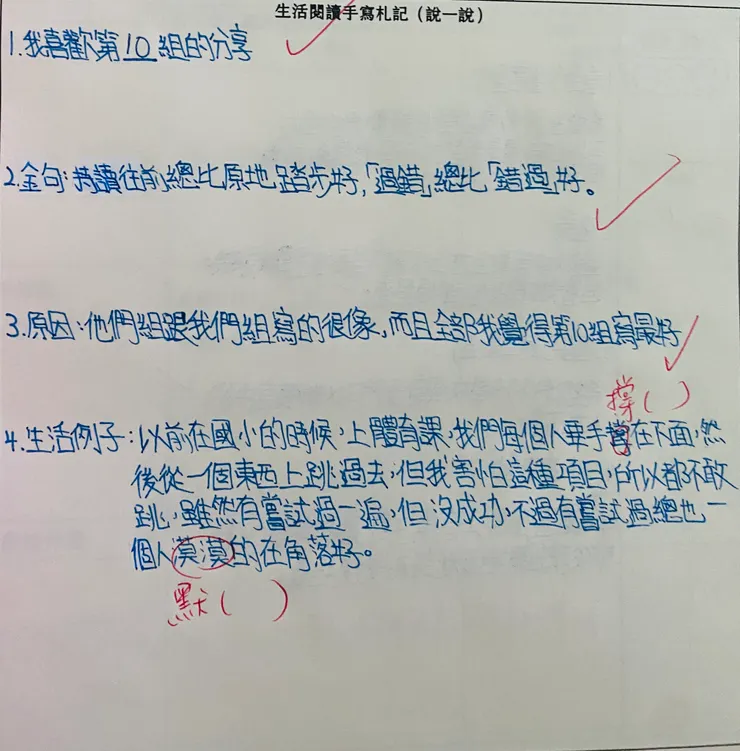 生活閱讀手寫札記（說一說）
1.我喜歡第10組的分享
2.金句:持讀往前總比原地踏步好,「過錯」總比「錯過」好。
3.原因:他們組跟我們組寫的很像,而且全部我覺得第10組寫最好
撐( )
4.生活例子:以前在國小的時候,上體育課,我們每個人要手在下面,然
後從一個東西上跳過去,但我害怕這種項目,所以都不敢
跳,雖然有嘗試過一遍,但沒成功,不過有嘗試過總比一
個人莫漠的在角落好。
默( )